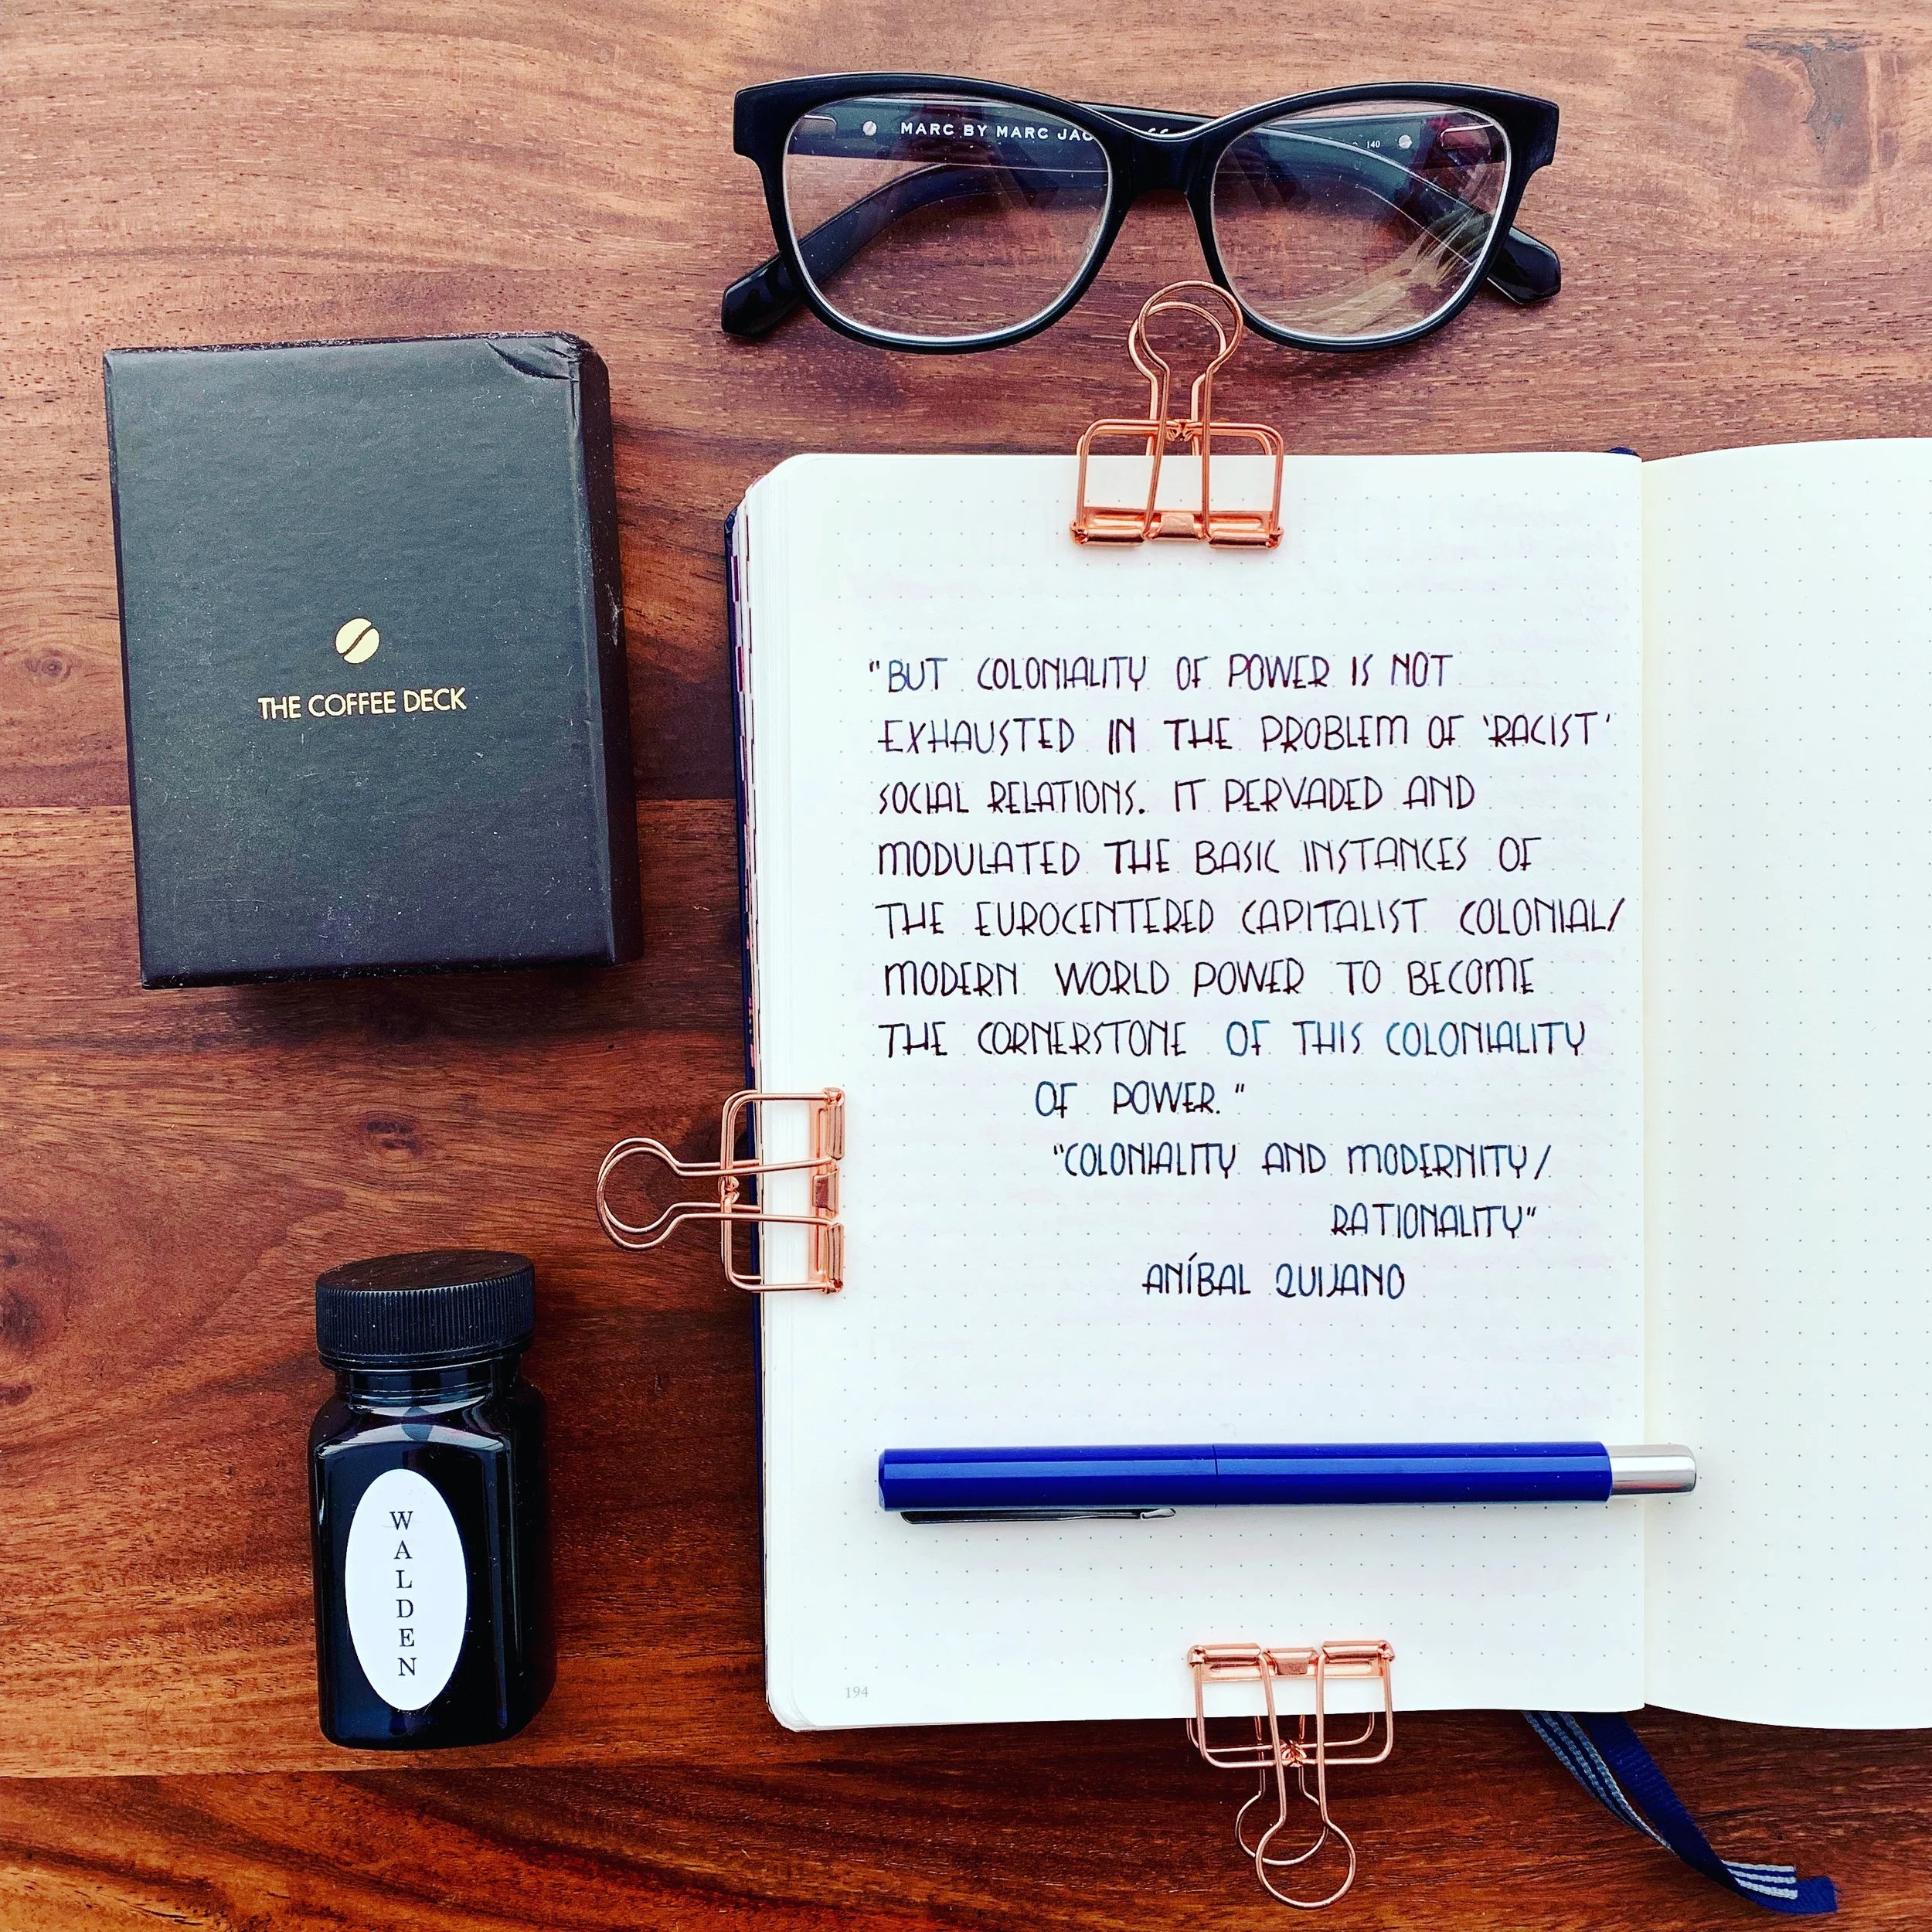 MARC BY MARC JAC
140
THE COFFEE DECK
"BUT COLONIALITY OF POWER IS NOT
EXHAUSTED IN THE PROBLEM OF 'RACIST'
SOCIAL RELATIONS. IT PERVADED AND
MODULATED THE BASIC INSTANCES OF
THE EUROCENTERED CAPITALIST COLONIAL/
MODERN WORLD POWER TO BECOME
THE CORNERSTONE OF THIS COLONIALITY
OF POWER."
"COLONIALITY AND MODERNITY/
RATIONALITY"
ANÍBAL QUIJANO
WALDEN
194